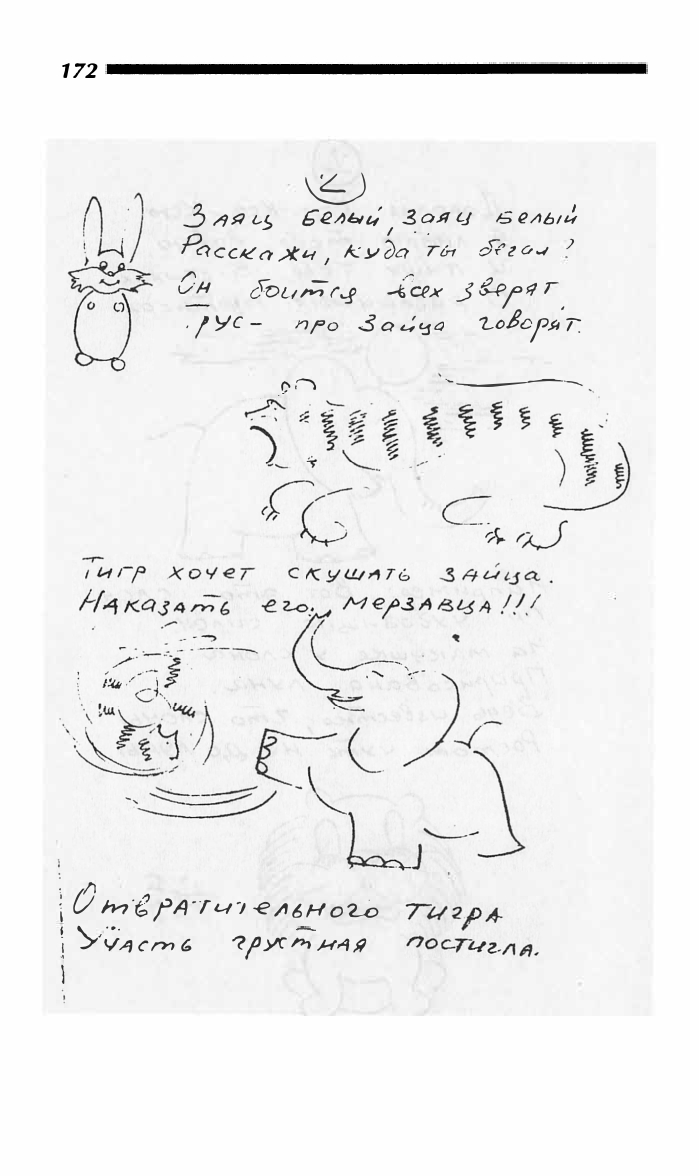 172
2
Заяц белый, заяц белый
Расскажи, куда ты бегал?
Он боится всех зверят
Трус – про Зайца говорят.
Тигр хочет скушать зайца.
Наказать его, мерзавца!!!
Отвратительного тигра
Участь грустная постигла.